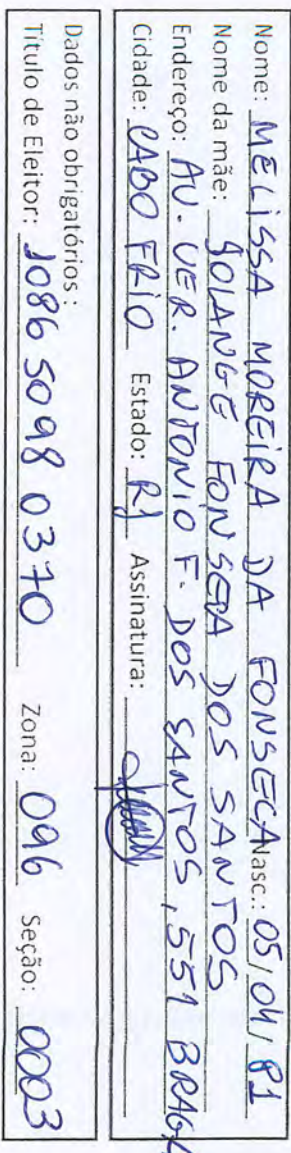 Nome: MELISSA MOREIRA DA FONSECA Nasc.: 05/04/81
Nome da mãe: SOLANGE FONSECA DOS SANTOS
Endereço: AV. VER. ANTONIO F. DOS SANTOS, 551 BRAGA
Cidade: CABO FRIO Estado: RJ Assinatura:
Dados não obrigatórios:
Título de Eleitor: 1086 5098 0370 Zona: 096 Seção: 0003